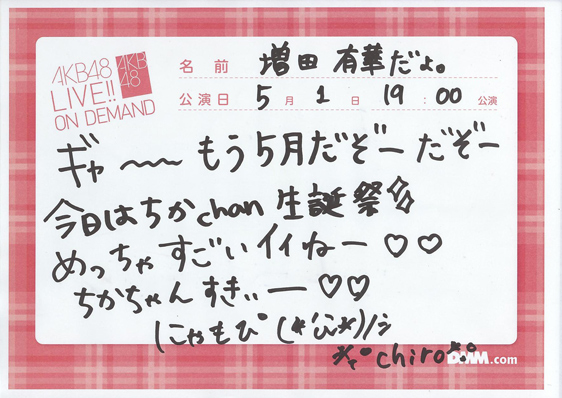 AKB48
LIVE!!
ON DEMAND
AKB
48
名前 増田 有華だよ。
公演日 5月1日 19:00 公演
ギャー〜〜もう5月だぞーだぞー
今日はちかchan生誕祭
めっちゃすごいイイねー♡♡
ちかちゃんすきぃー♡♡
にゃもぴ
chiro
DMM.com